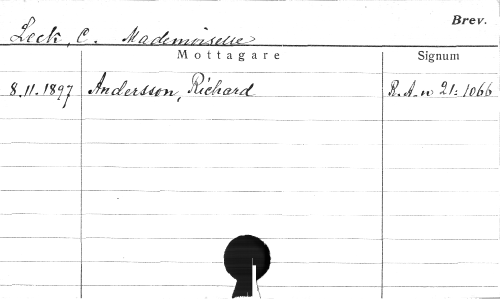 Brev.
Leck, C. Mademoiselle
Mottagare Signum
8.11.1897 Andersson, Richard R.A. n 21:1066